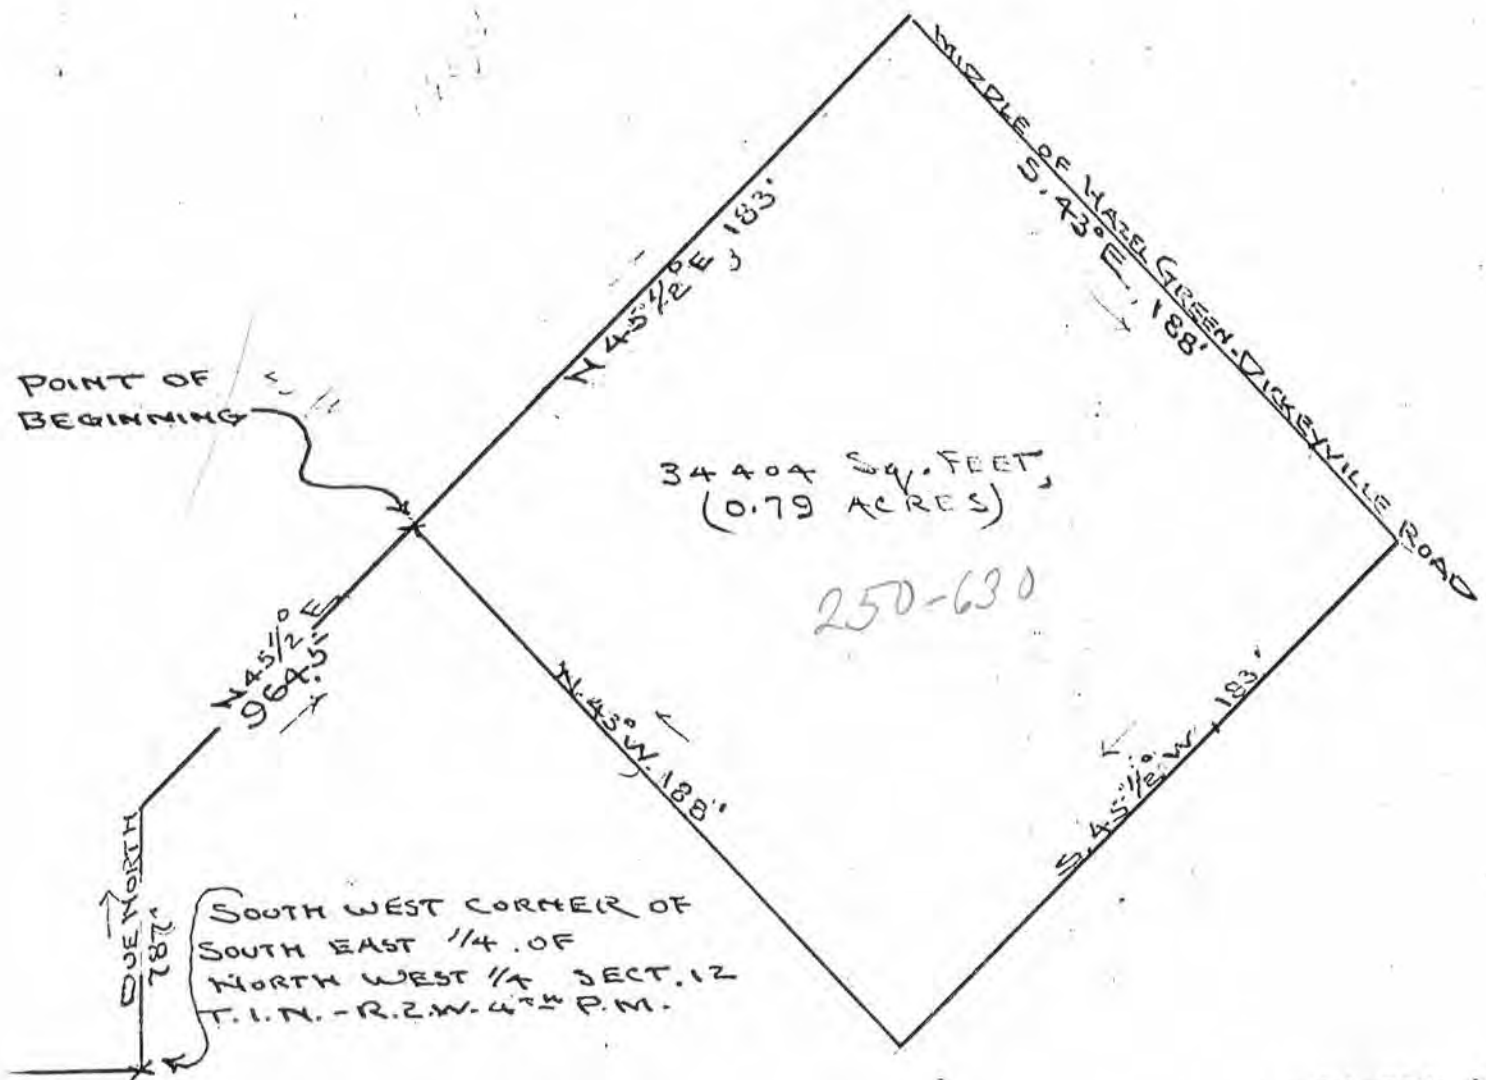 MIDDLE OF HAZEL GREEN-DICKEYVILLE ROAD
S. 43° E, 188'
N 45 1/2° E, 183'
POINT OF
BEGINNING
34404 Sq. FEET,
(0.79 ACRES)
250-630
N 45 1/2° E
964.5'
N. 43° W. 188'
S. 45 1/2° W, 183'
DUE NORTH
282'
SOUTH WEST CORNER OF
SOUTH EAST 1/4 . OF
NORTH WEST 1/4 SECT. 12
T. 1. N. - R. 2. W. 4TH P. M.